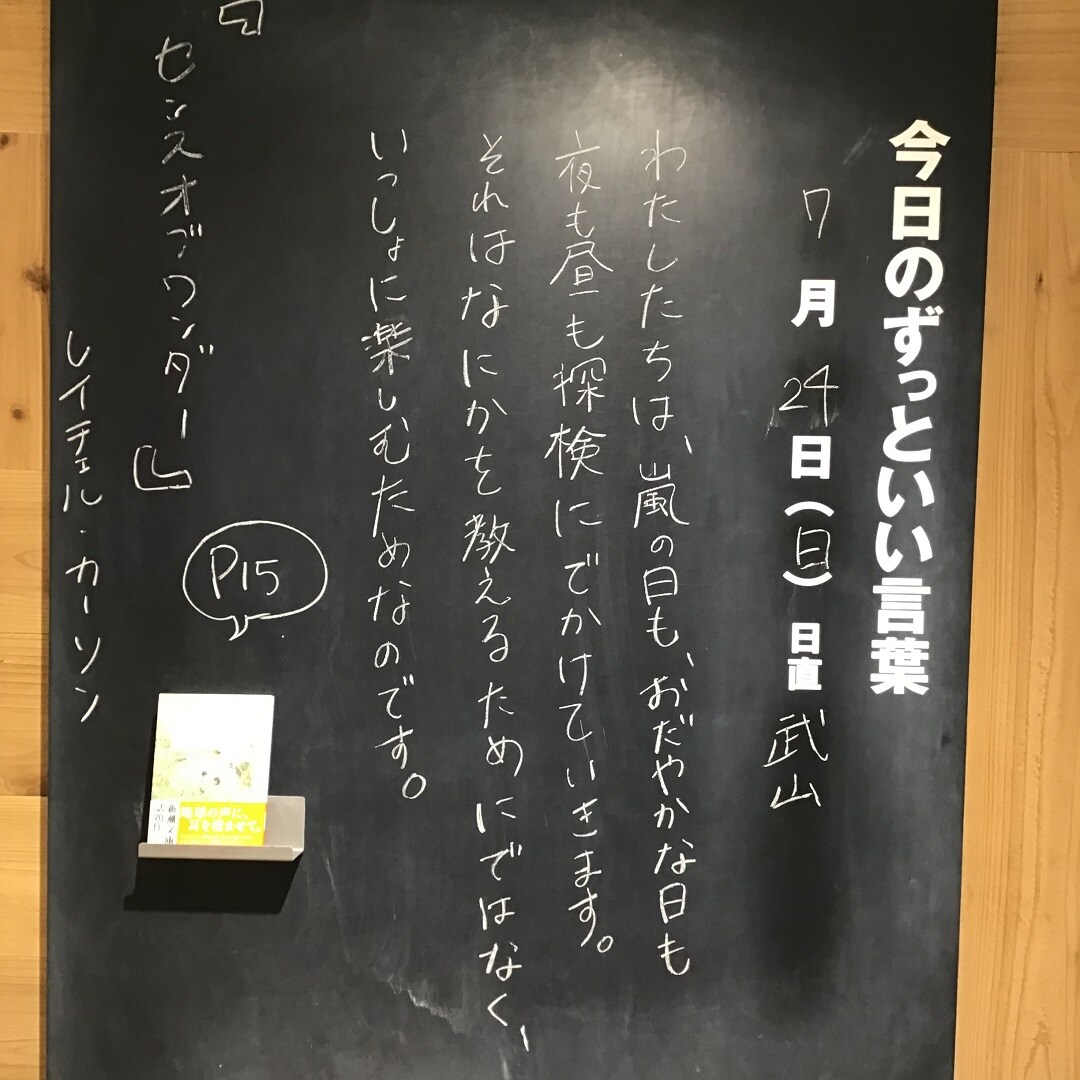 今日のずっといい言葉
7月24日(日) 日直 武山
わたしたちは、嵐の日も、おだやかな日も
夜も昼も探検にでかけていきます。
それはなにかを教えるためにではなく、
いっしょに楽しむためなのです。
『センスオブワンダー』
レイチェル・カーソン
P15
地球の声に、
耳を澄ませて。
新潮文庫